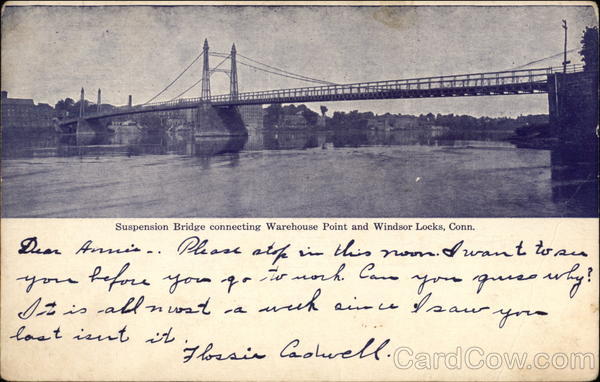 Suspension Bridge connecting Warehouse Point and Windsor Locks, Conn.
Dear Annie -. Please stop in this noon. I want to see
you before you go to work. Can you guess why?
It is all most a week since I saw you
last isnt it.
Flossie Cadwell.
CardCow.com